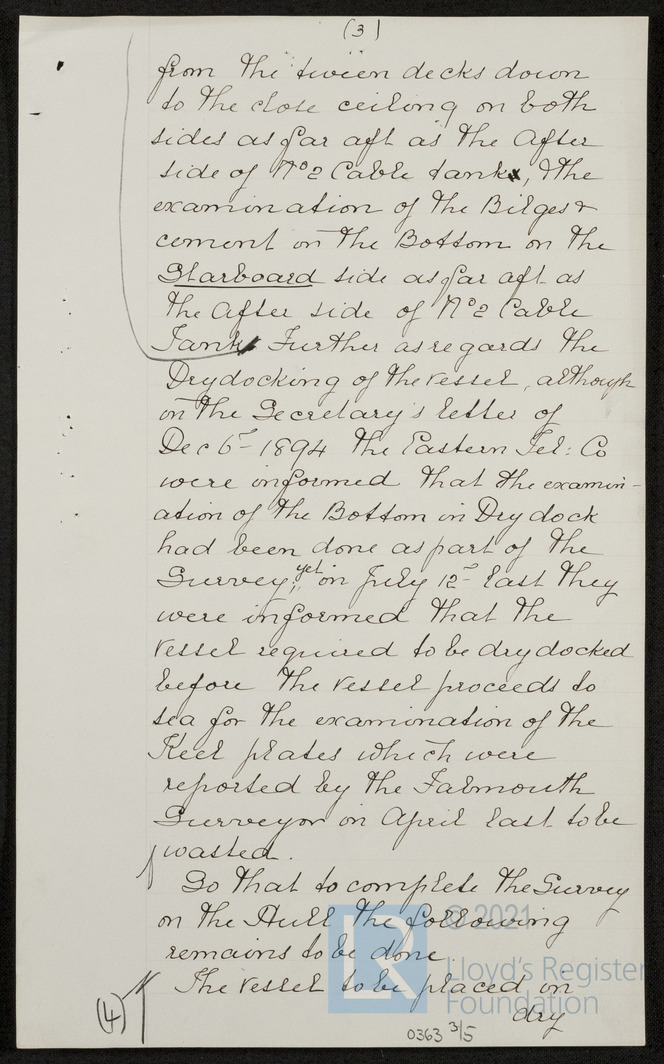 (3)
from the 'tween decks down
to the close ceiling on both
sides as far aft as the After
side of No 2 Cable tank, & the
examination of the Bilges &
cement on the Bottom on the
Starboard side as far aft as
the After side of No 2 Cable
Tank. Further as regards the
Drydocking of the vessel, although
in the Secretary's letter of
Dec 6th 1894 the Eastern Tel: Co
were informed that the examin-
ation of the Bottom in Dry dock
had been done as part of the
Survey, yet on July 12th last they
were informed that the
vessel required to be drydocked
before the vessel proceeds to
sea for the examination of the
Keel plates which were
reported by the Falmouth
Surveyor in April last to be
wasted.
So that to complete the Survey
on the Hull the following
remains to be done
The vessel to be placed in
dry
(4)
0363 3/5
LR
© 2021
Lloyd's Register
Foundation